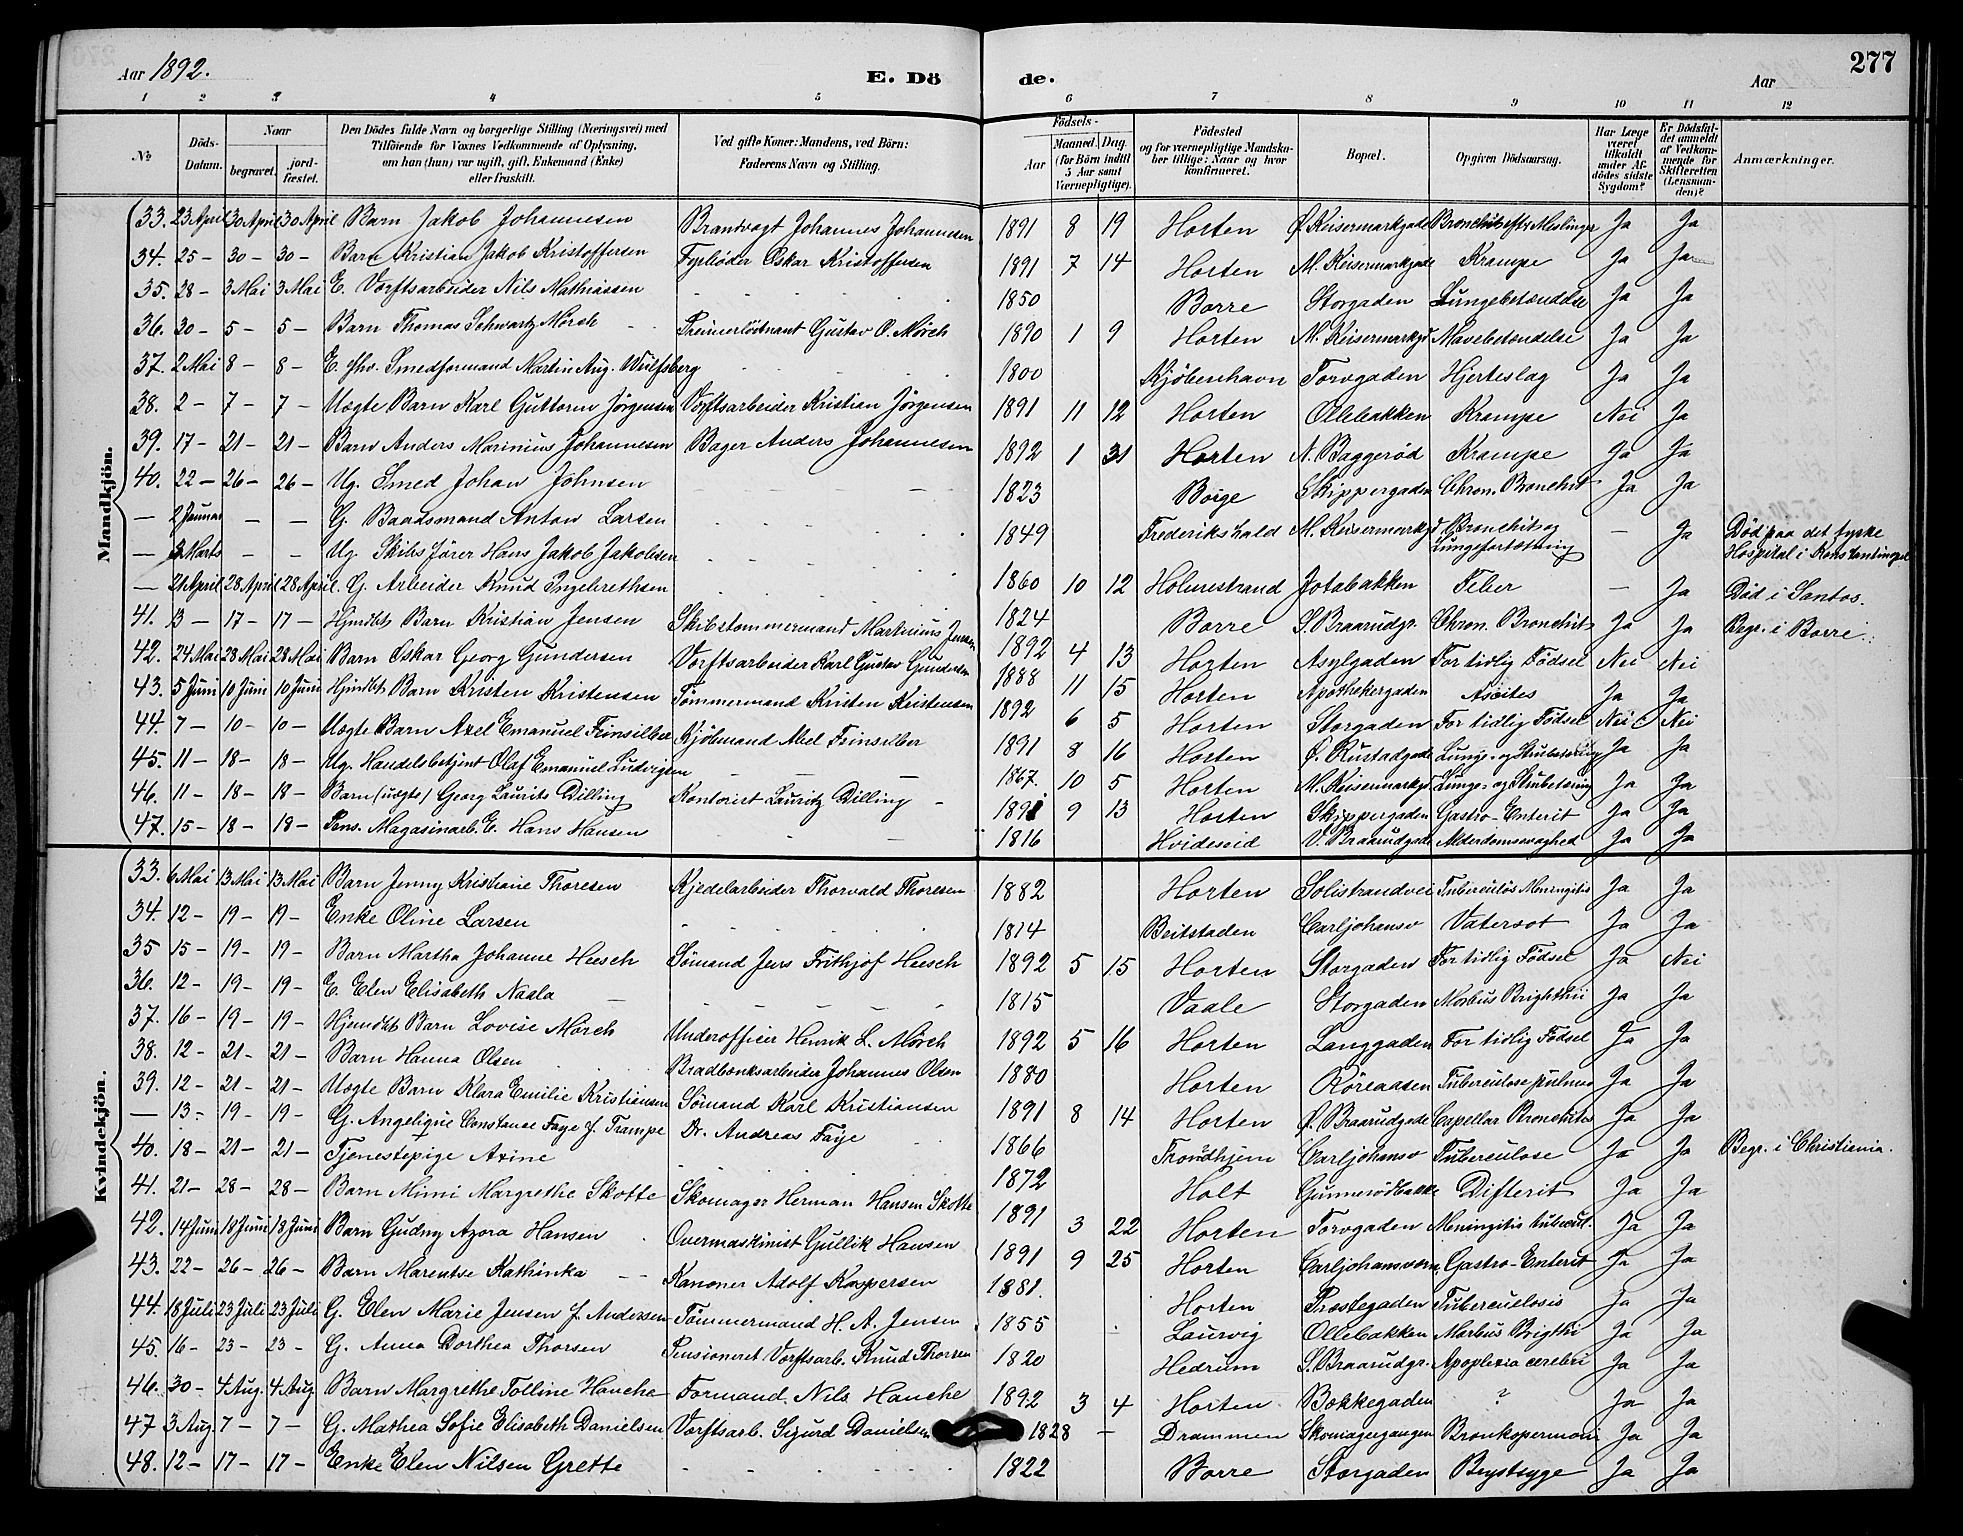 277
Aar 1892. E. Dö de. Aar
1 2 3 4 5 6 7 8 9 10 11 12
№ Döds-Datum. Naar begravet. jordfæstet. Den Dödes fulde Navn og borgerlige Stilling (Næringsvei) med Tilföiende for Voxnes Vedkommende af Oplysning, om han (hun) var ugift, gift, Enkemand (Enke) eller fraskilt. Ved gifte Koner: Mandens, ved Börn: Faderens Navn og Stilling. Födsels- Aar Maaned. Dag. (for Börn indtil 5 Aar samt Værnepligtige). Födested og for værnepligtige Mandskaber tillige: Naar og hvor konfirmeret. Bopæl. Opgiven Dödsaarsag. Har Læge været tilkaldt under Afdödes sidste Sygdom? Er Dödsfaldet anmeldt af Vedkommende for Skifteretten (Lensmanden)? Anmærkninger.
Mandkjön.
33. 23 April 30 April 30 April Barn Jakob Johannesen Brandvagt Johannes Johannesen 1891 8 19 Horten Ø. Keisermarkgade Bronchit efter Meslinger Ja Ja
34. 25 – 30 – 30 – Barn Kristian Jakob Kristoffersen Fyrbøder Oskar Kristoffersen 1891 7 14 Horten M. Keisermarkgade Krampe Ja Ja
35. 28 – 3 Mai 3 Mai E. Værftsarbeider Nils Mathiassen 1850 Borre Storgaden Lungebetændelse Ja Ja
36. 30 – 5 – 5 – Barn Thomas Schwartz Mørch Premierlöitnant Gustav O. Mørch 1890 1 9 Horten M. Keisermarkgd Mavebetændelse Ja Ja
37. 2 Mai 8 – 8 – E. fhv. Smedformand Martin Aug. Wulfsberg 1800 Kjøbenhavn Torvgaden Hjerteslag Ja Ja
38. 2 – 7 – 7 – Uægte Barn Karl Guttorm Jørgensen Værftsarbeider Kristian Jørgensen 1891 11 12 Horten Ollebakken Krampe Nei Ja
39. 17 – 21 – 21 – Barn Anders Marinius Johannesen Bager Anders Johannesen 1892 1 31 Horten N. Baggerød Krampe Ja Ja
40. 22 – 26 – 26 – Ug. Smed Johan Johnsen 1823 Boige Skippergaden Chron. Bronchit Ja Ja
— 2 Januar – – G. Baadsmand Anton Larsen 1849 Frederikshald M. Keisermarkgd Bronchit og Lungefortætning – Ja Död paa det tyske Hospital i Konstantinopel
— Marts – – Ug. Skibsfører Hans Jakob Jakobsen 1860 10 12 Holmestrand Jotabakken Feber – Ja Död i Santos.
— 21 April 28 April 28 April. G. Arbeider Knud Ingebrethsen 1824 Borre S. Braarudgr. Chron. Bronchit Ja Ja Begr. i Borre.
41. 13 – 17 – 17 – Hjmdbt Barn Kristian Jensen Skibstømmermand Martinius Jensen 1892 4 13 Horten Asylgaden For tidlig Födsel Nei Nei
42. 24 Mai 28 Mai 28 Mai Barn Oskar Georg Gundersen Værftsarbeider Karl Gustav Gundersen 1888 11 15 Horten Apothekergaden Ascites Ja Ja
43. 5 Juni 10 Juni 10 Juni Hjmdbt Barn Kristen Kristensen Tømmermand Kristen Kristensen 1892 6 5 Horten Storgaden For tidlig Födsel Nei Nei
44. 7 – 10 – 10 – Uægte Barn Axel Emanuel Feinsilber Kjøbmand Abel Feinsilber 1891 8 16 Horten Ø. Rustadgade Lunge- og Strubetæring Ja Ja
45. 11 – 18 – 18 – Ug. Handelsbetjent Olaf Emanuel Ludvigsen 1867. 10 5 Horten M. Keisermarkgd Lunge- og Strubetæring Ja Ja
46. 11 – 18 – 18 – Barn (uægte) Georg Laurits Dilling Kontorist Lauritz Dilling 1891 9 13 Horten Skippergaden Gastro-Enterit Ja Ja
47. 15 – 18 – 18 – Pens. Magasinarb. E. Hans Hansen 1816 Hvideseid V. Braarudgade Alderdomssvaghed Ja Ja
Kvindekjön.
33. 6 Mai 13 Mai 13 Mai Barn Jenny Kristiane Thoresen Kjedelarbeider Thorvald Thoresen 1882 Horten Solistrandvei Tuberculøs Meningitis Ja Ja
34. 12 – 19 – 19 – Enke Oline Larsen 1814 Beitstaden Carljohansv Vatersot Ja Ja
35 15 – 19 – 19 – Barn Martha Johanne Heesch Sømand Jens Frithjof Heesch 1892 5 15 Horten Storgaden For tidlig Födsel Ja Nei
36. 12 – 19 – 19 – E. Elen Elisabeth Naala 1815 Vaale Storgaden Morbus Brighthii Ja Ja
37. 16 – 19 – 19 – Hjemdbt Barn Lovise Mörch Underofficer Henrik L. Mörch 1892 5 16 Horten Langgaden For tidlig Födsel Ja Ja
38. 12 – 21 – 21 – Barn Hanna Olsen Bradbænksarbeider Johannes Olsen 1880 Horten Röreaasen Tuberculose pulmon Ja Ja
39. 12 – 21 – 21 – Uægte Barn Klara Emilie Kristiansen Sømand Karl Kristiansen 1891 8 14 Horten Ø. Braarudgade Capellar Bronchites Ja Ja
— 13 – 19 – 19 – G. Angelique Constance Faye f. Trampe Dr. Andreas Faye 1866 Trondhjem Carljohansv Tuberculose Ja Ja Begr. i Christiania.
40. 18 – 21 – 21 – Tjenestepige Axine 1872 Holt Gunnerödbakke Difterit Ja Ja
41. 21 – 28 – 28 – Barn Mimi Margrethe Skotte Skomager Herman Hansen Skotte 1891 3 22 Horten Torvgaden Meningitis tubercul. Ja Ja
42. 14 Juni 18 Juni 18 Juni Barn Gudny Azora Hansen Overmaskinist Gullik Hansen 1891 9 25 Horten Carljohansværn Gastro-Enterit Ja Ja
43. 22 – 26 – 26 – Barn Marentse Kathinka Kanoner Adolf Kaspersen 1881. Horten Præstegaden Tuberculosis Ja Ja
44. 18 Juli 23 Juli 23 Juli G. Elen Marie Jensen f. Andersen Tömmermand H. A. Jensen 1855 Laurvig Ollebakken Morbus Brigthi Ja Ja
45. 16 – 23 – 23 – G. Anna Dorthea Thorsen Pensioneret Værftsarb. Knud Thorsen 1820 Hedrum S. Braarudgr. Apoplexia cerebri Ja Ja
46. 30 – 4 Aug. 4 Aug. Barn Margrethe Tolline Hanche Formand Nils Hanche 1892 3 4 Horten Bakkegaden ? Ja Ja
47 3 Aug. 7 – 7 – G. Mathea Sofie Elisabeth Danielsen Værftsarb. Sigurd Danielsen 1828 – Drammen Skomagergangen Ja Ja
48. 12 – 17 – 17 – Enke Elen Nilsen Grette 1822 Borre Storgaden Brystsyge Ja Ja